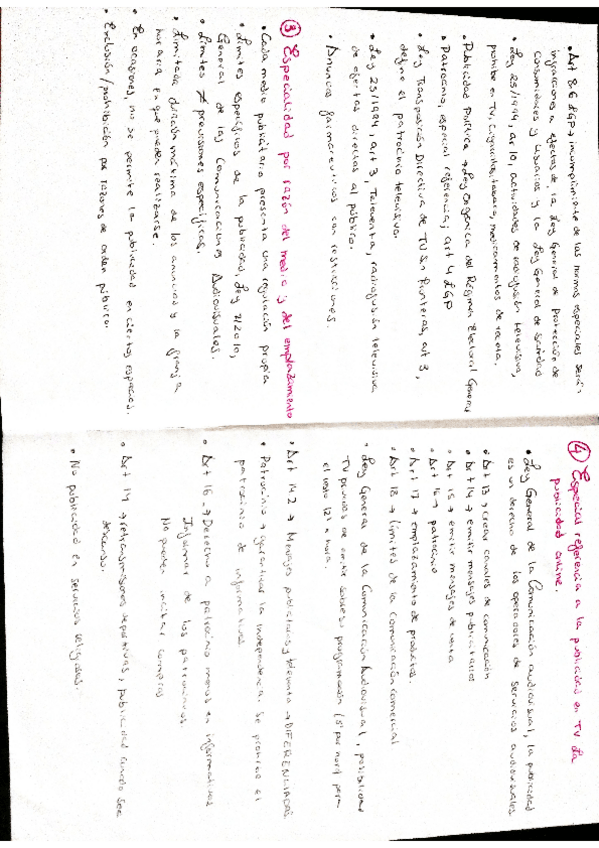 • Art 8.6 LGP → incumplimiento de las normas especiales serán
infracciones a efectos de la Ley General de Protección de
Consumidores y Usuarios y la Ley General de Sanidad
• Ley 25/1994, ar 10, actividades de radiodifusión televisiva,
prohíbe en TV, cigarrillos, tabaco, medicamentos de receta.
• Publicidad Política → Ley Orgánica del Régimen Electoral General
• Patrocinio, especial referencia; art 4 LGP
• Ley Transposición Directiva de TV Sin Fronteras, art 3,
define el patrocinio televisivo.
• Ley 25/1994, art 3, Televenta, radiodifusión televisiva
de ofertas directas al público.
• Anuncios farmaceuticos con restricciones.
③ Especialidad por razón del medio y del emplazamiento
• Cada medio publicitario presenta una regulación propia
• Límites específicos de la publicidad, Ley 7/2010,
General de las Comunicaciones Audiovisuales.
• Límites ≠ previsiones específicas.
• Limitada duración máxima de los anuncios y la franja
horaria en que pueden realizarse.
• En ocasiones, no se permite la publicidad en ciertos espacios.
• Exclusión/prohibición por razones de orden público.
④ Especial referencia a la publicidad en TV. La
publicidad online.
• Ley General de la Comunicación audiovisual, la publicidad
es un derecho de los operadores de servicios audiovisuales
• Art 13 → crear canales de comunicación
• Art 14 → emitir mensajes publicitarios
• Art 15 → emitir mensajes de venta
• Art 16 → patrocinio
• Art 17 → emplazamiento de productos.
• Art 18 → límites de la comunicación comercial
• Ley General de la Comunicación Audiovisual, posibilidad
TV privadas de emitir sobre su programación (5' por hora) pero
el resto 12' a hora.
• Art 14.2 → Mensajes publicitarios y televenta → DIFERENCIADAS
• Patrocinio → garantizar la independencia. Se prohíbe el
patrocinio de informativos
• Art 16 → Derecho a patrocinio menos en informativos
Informar de los patrocinios
No pueden incitar compras
• Art 14 → retransmisiones deportivas, publicidad cuando sea
descanso.
• No publicidad en servicios religiosos.